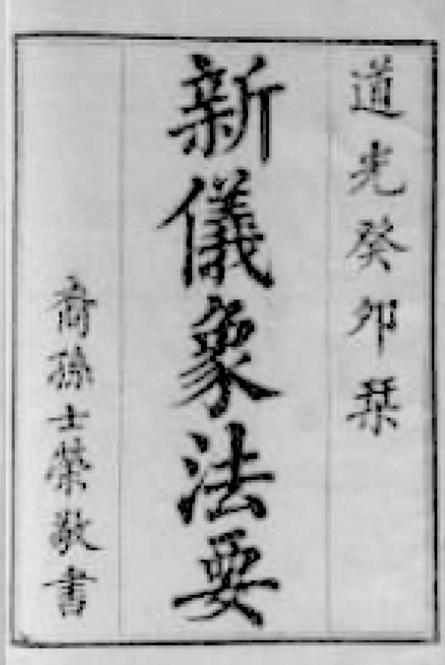 道光癸卯栞
新儀象法要
裔孫士榮敬書